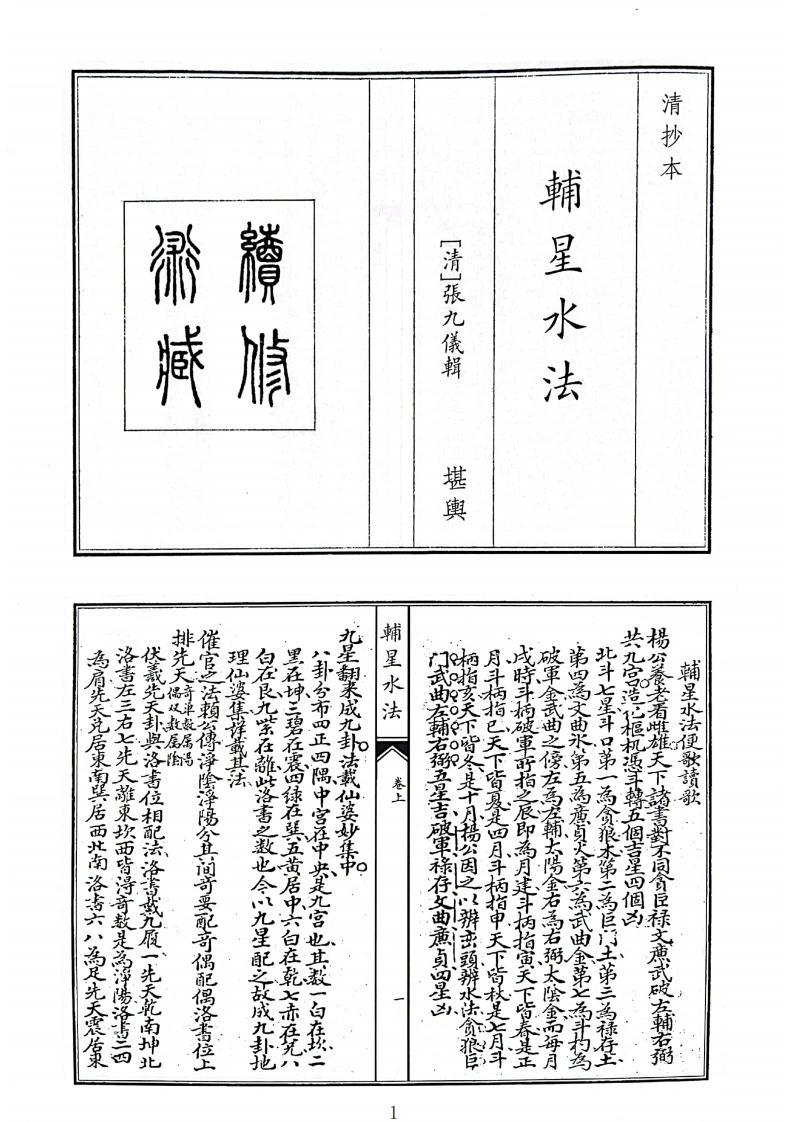 清抄本
輔星水法
［清］張九儀輯　堪輿
續修
術藏
輔星水法便歌讀歌
楊公養老看雌雄天下諸書對不同貪巨祿文廉武破左輔右弼
共九宮造化樞机憑斗轉五個吉星四個凶
北斗七星斗口第一為貪狼木第二為巨门土第三為祿存土
第四為文曲水第五為廉貞火第六為武曲金第七為斗杓為
破軍金武曲之傍左為左輔太陽金右為右弼太陰金而每月
戌時斗柄破軍所指之辰即為月建斗柄指寅天下皆春是正
月斗柄指巳天下皆夏是四月斗柄指申天下皆秋是七月斗
柄指亥天下皆冬是十月楊公因之以辨巒頭辨水法貪狼巨
门武曲左輔右弼五星吉破軍祿存文曲廉貞四星凶
輔星水法
卷上
一
九星翻來成九卦法載仙婆妙集中
八卦分布四正四隅中宮在中央是九宮也其数一白在坎二
黑在坤三碧在震四綠在巽五黃居中六白在乾七赤在兌八
白在艮九紫在離此洛書之数也今以九星配之故成九卦地
理仙婆集詳載其法
催官之法賴公傳淨陰淨陽分其间奇要配奇偶配偶洛書位上
排先天奇单数属陽偶双数属陰
伏羲先天卦與洛書位相配法洛書戴九履一先天乾南坤北
洛書左三右七先天離東坎西皆淂奇数是為淨陽洛書二四
為肩先天兌居東南巽居西北南洛書六八為足先天震居東
1